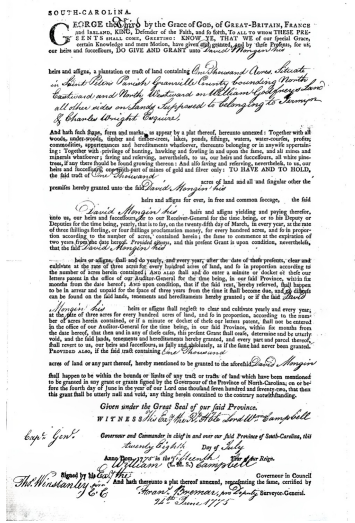 SOUTH-CAROLINA.
GEORGE the Third by the Grace of God, of GREAT-BRITAIN, FRANCE
and IRELAND, KING, Defender of the Faith, and so forth, TO ALL TO WHOM THESE PRE-
SENTS SHALL COME, GREETING: KNOW YE, THAT WE of our special Grace,
certain Knowledge and mere Motion, have given and granted, and by these Presents, for us,
our heirs and successors, DO GIVE AND GRANT unto David Mongin his
heirs and assigns, a plantation or tract of land containing One Thousand Acres Situate
in Saint Peters Parish Granville County bounding North
Eastward and North Westward on William Godfrey's Land
all other sides on Lands Supposed to belonging to Jermyn
& Charles Wright Esquires.
And hath such shape, form and marks, as appear by a plat thereof, hereunto annexed: Together with all
woods, under-woods, timber and timber-trees, lakes, ponds, fishings, waters, water-courses, profits,
commodities, appurtenances and hereditaments whatsoever, thereunto belonging or in anywise appertain-
ing: Together with privilege of hunting, hawking and fowling in and upon the same, and all mines and
minerals whatsoever; saving and reserving, nevertheless, to us, our heirs and successors, all white pine-
trees, if any there should be found growing thereon: And also saving and reserving, nevertheless, to us, our
heirs and successors, one-tenth-part of mines of gold and silver only: TO HAVE AND TO HOLD,
the said tract of One Thousand
acres of land and all and singular other the
premises hereby granted unto the said David Mongin his
heirs and assigns for ever, in free and common soccage, the said
David Mongin his heirs and assigns yielding and paying therefor,
unto us, our heirs and successors, or to our Receiver-General for the time being, or to his Deputy or
Deputies for the time being, yearly, that is to say, on the twenty-fifth day of March, in every year, at the rate
of three shillings sterling, or four shillings proclamation money, for every hundred acres, and so in propor-
tion according to the number of acres, contained herein; the same to commence at the expiration of
two years from the date hereof. Provided always, and this present Grant is upon condition, nevertheless,
that the said David Mongin his
heirs or assigns, shall and do yearly, and every year, after the date of these presents, clear and
cultivate at the rate of three acres for every hundred acres of land, and so in proportion according to
the number of acres herein contained; AND ALSO shall and do enter a minute or docket of these our
letters patent in the office of our Auditor-General for the time being, in our said Province, within six
months from the date hereof; AND upon condition, that if the said rent, hereby reserved, shall happen
to be in arrear and unpaid for the space of three years from the time it shall become due, and no distress
can be found on the said lands, tenements and hereditaments hereby granted; or if the said David
Mongin his heirs or assigns shall neglect to clear and cultivate yearly and every year,
at the rate of three acres for every hundred acres of land, and so in proportion, according to the num-
ber of acres herein contained, or if a minute or docket of these our letters patent, shall not be entered
in the office of our Auditor-General for the time being, in our said Province, within six months from
the date hereof, that then and in any of these cases, this present Grant shall cease, determine and be utterly
void, and the said lands, tenements and hereditaments hereby granted, and every part and parcel thereof,
shall revert to us, our heirs and successors, as fully and absolutely, as if the same had never been granted.
PROVIDED ALSO, if the said tract containing One Thousand
acres of land or any part thereof, hereby mentioned to be granted to the aforesaid David Mongin
shall happen to be within the bounds or limits of any tract or tracts of land which have been mentioned
to be granted in any grant or grants signed by the Governor of the Province of North-Carolina, on or be-
fore the fourth day of June in the year of our Lord one thousand seven hundred and seventy-one, that then
this grant shall be utterly null and void, any thing herein contained to the contrary notwithstanding.
Given under the Great Seal of our said Province.
WITNESS His Exy. the Rt. Hble Lord Wm. Campbell
Capn. Genl.
Governor and Commander in chief in and over our said Province of South-Carolina, this
Twenty Eighth Day of July
Anno Dom. 1775 in the Fifteenth Year of our Reign.
William (L.M.S.) Campbell
Signed by his Exy. the Governor in Council
And hath thereunto a plat thereof annexed, representing the same, certified by
Thos. Winstanley
C C
Thoms. Bremar, pro Deputy Surveyor-General.
24th June 1775